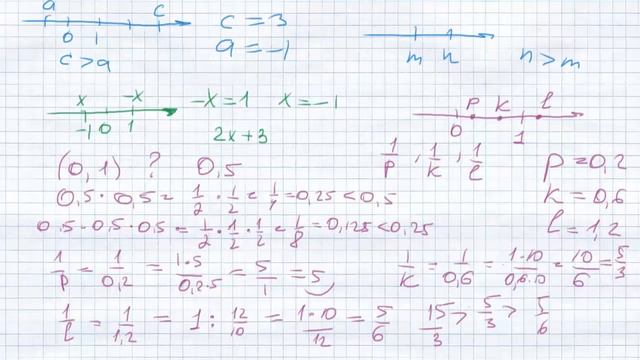 a c
0 1
c > a
c = 3
a = -1
m n n > m
x -x
-1 0 1
-x = 1 x = -1
2x + 3
p k l
0 1
(0,1) ? 0,5
1/p , 1/k , 1/l
p = 0,2
k = 0,6
l = 1,2
0,5 · 0,5 = 1/2 · 1/2 = 1/4 = 0,25 < 0,5
0,5 · 0,5 · 0,5 = 1/2 · 1/2 · 1/2 = 1/8 = 0,125 < 0,25
1/p = 1/0,2 = 1·5/0,2·5 = 5/1 = 5
1/k = 1/0,6 = 1·10/0,6·10 = 10/6 = 5/3
1/l = 1/1,2 = 1 : 12/10 = 1·10/12 = 5/6
15/3 > 5/3 > 5/6